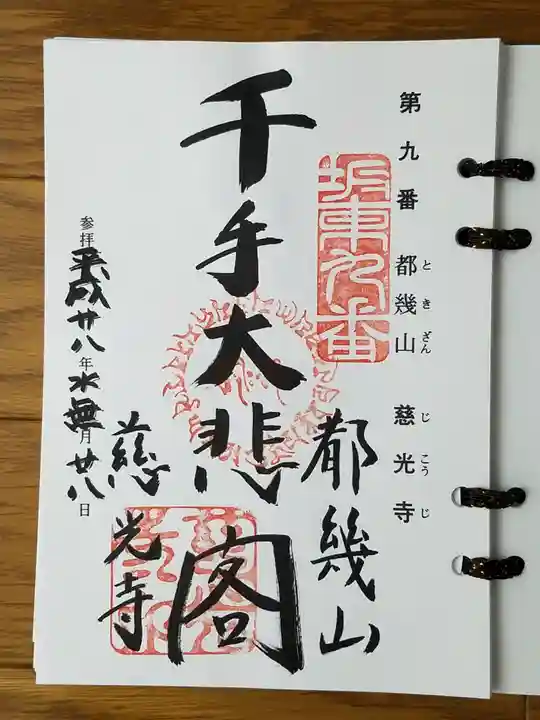 第九番 都幾山 慈光寺
と き ざん じ こう じ
坂東九番
都幾山
千手大悲閣
慈光寺
参拝 平成廿八年水無月廿八日